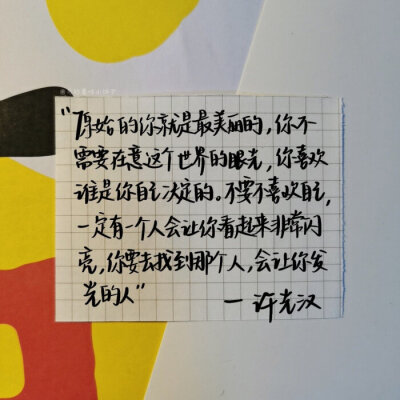 "原始的你就是最美丽的,你不
需要在意这个世界的眼光,你喜欢
谁是你自己决定的。不要不喜欢自己,
一定有一个人会让你看起来非常闪
亮,你要去找到那个人,会让你发
光的人"
—许光汉